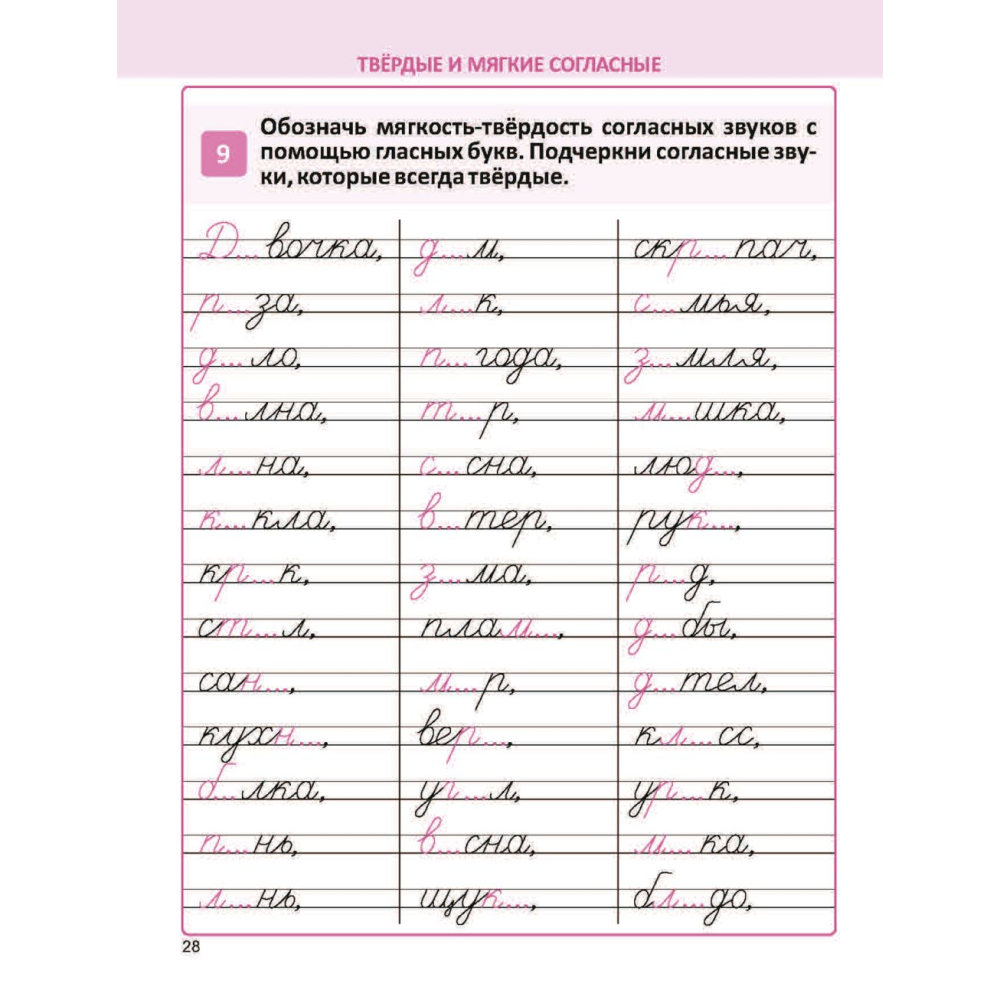 ТВЁРДЫЕ И МЯГКИЕ СОГЛАСНЫЕ
9
Обозначь мягкость-твёрдость согласных звуков с
помощью гласных букв. Подчеркни согласные зву-
ки, которые всегда твёрдые.
Д...вочка, д...м, скр...пач,
р...за, л...к, с...мья,
д...ло, п...года, з...мля,
в...лна, т...р, м...шка,
л...на, с...сна, люд...,
к...кла, в...тер, рук...,
кр...к, з...ма, р...д,
ст...л, плам..., д...бы,
сан..., м...р, д...тел,
кухн..., вер..., кл...сс,
б...лка, уг...л, ур...к,
п...нь, в...сна, м...ка,
л...нь, щук..., бл...до,
28